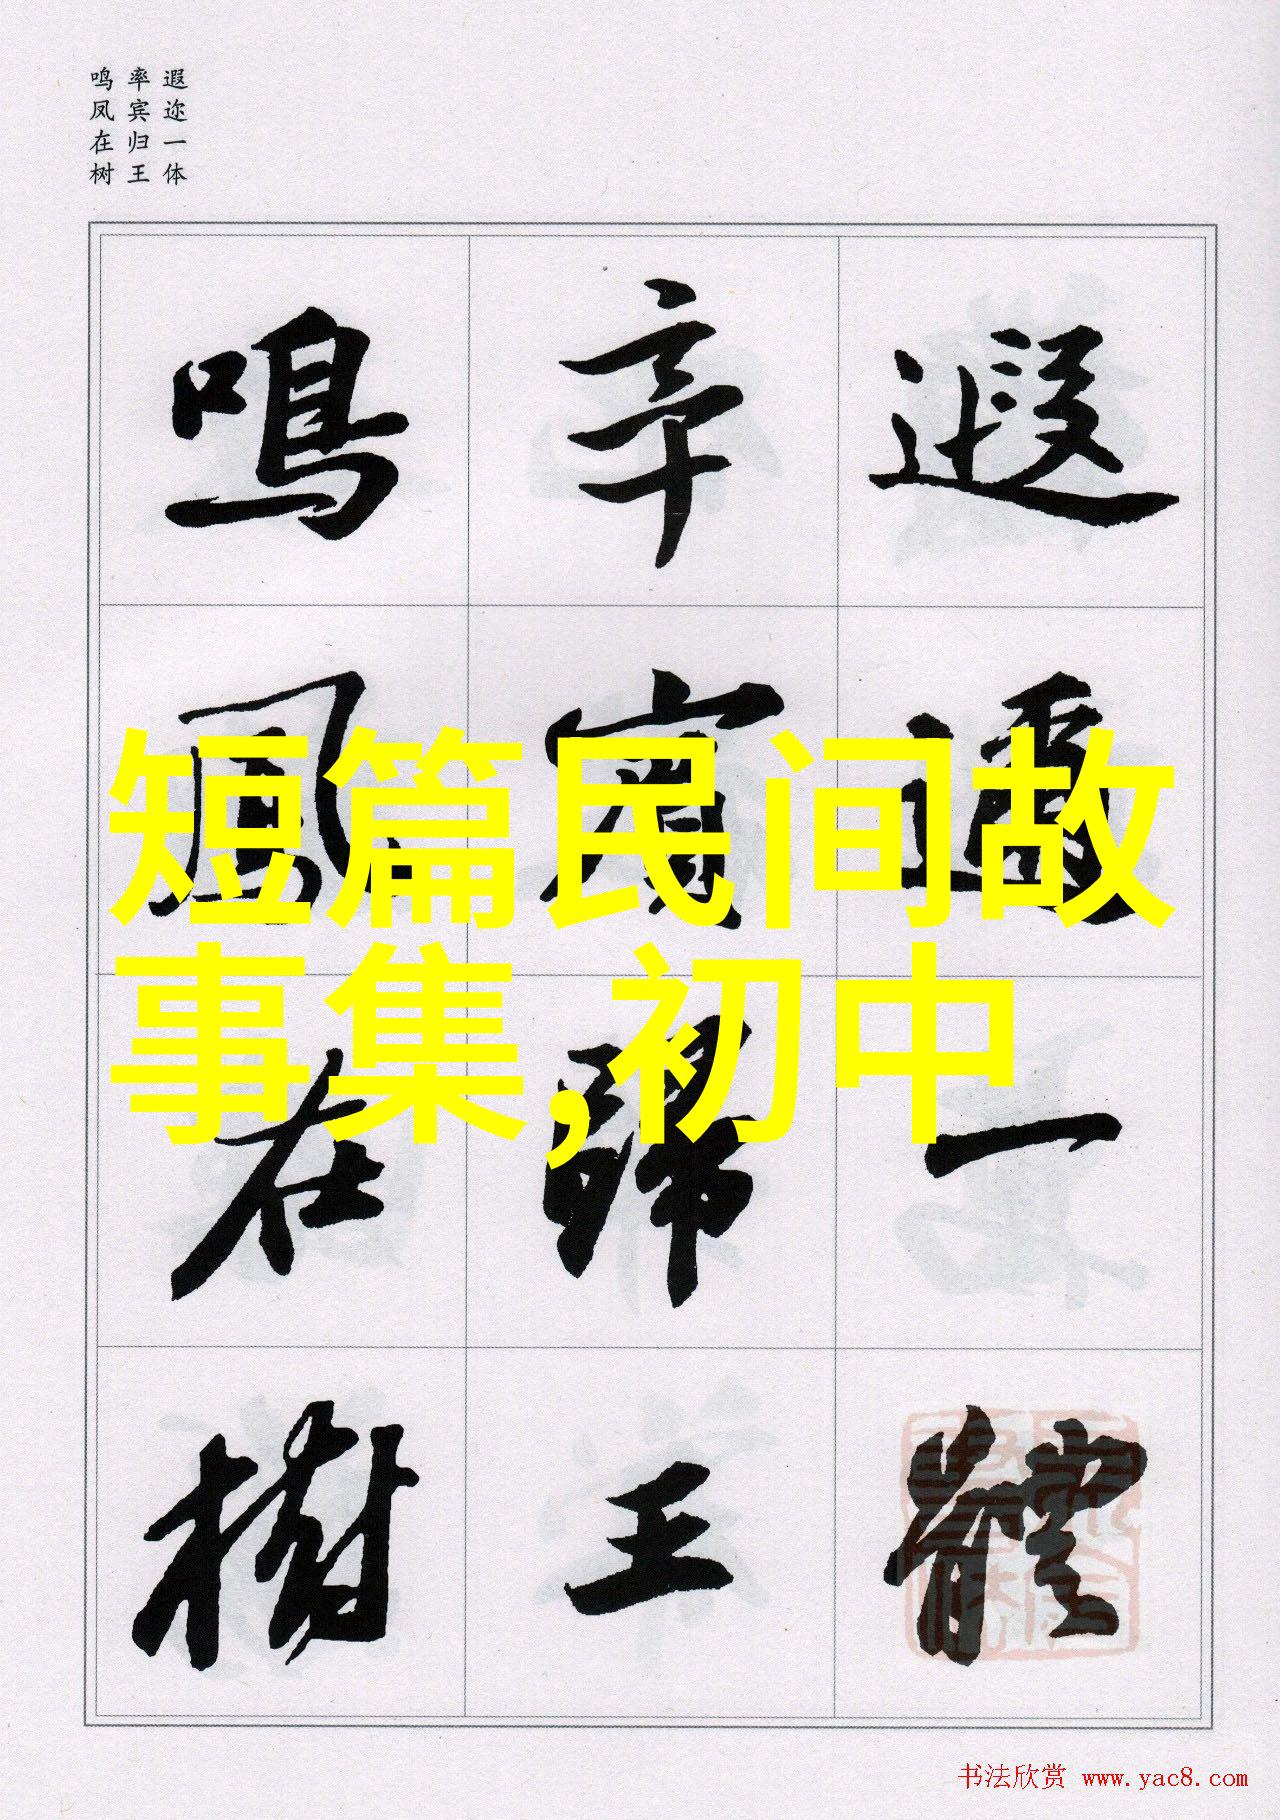 遐迩一体
率宾归王
鸣凤在树
遐邇一體
率賓歸王
鳴鳳在樹
短篇民间故
事集,初中
书法欣赏 www.yac8.com